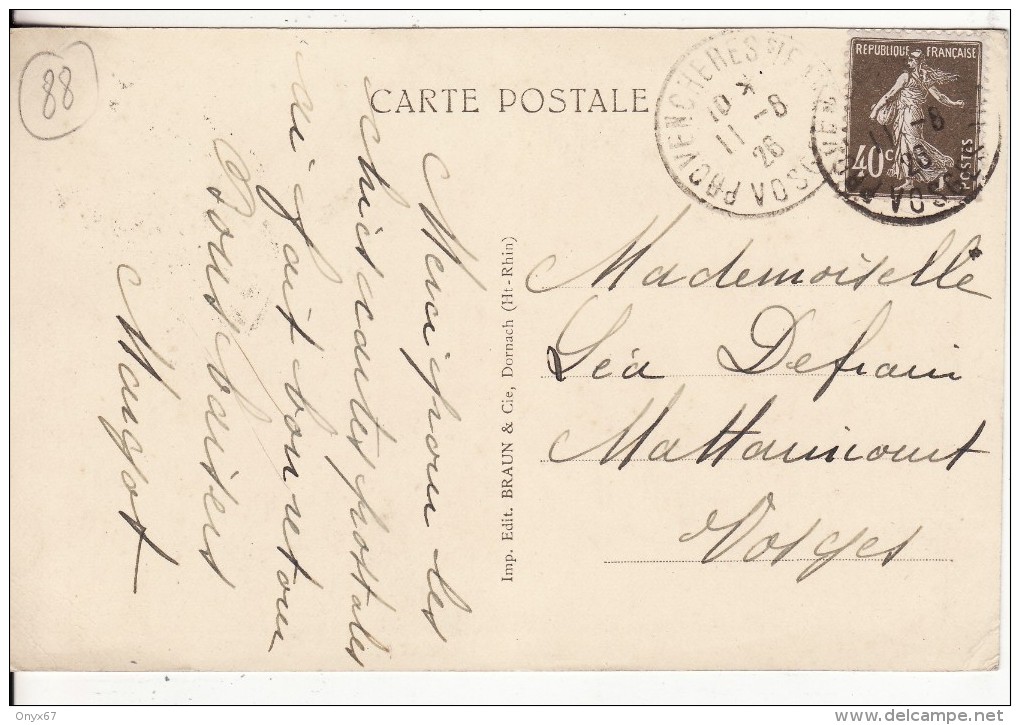 88
CARTE POSTALE
RÉPUBLIQUE FRANÇAISE
40c
POSTES
PROVENCHERES
VOSGES
10 *
11 -8
26
11 -8
26
VOSGES
Merci pour les
chics cartes postales
ai fait bon retour
Bons baisers
Margot
Imp. Edit. BRAUN & Cie, Dornach (Ht-Rhin)
Mademoiselle
Léa Defrain
Mattaincourt
Vosges
Onyx67
delcampe.net